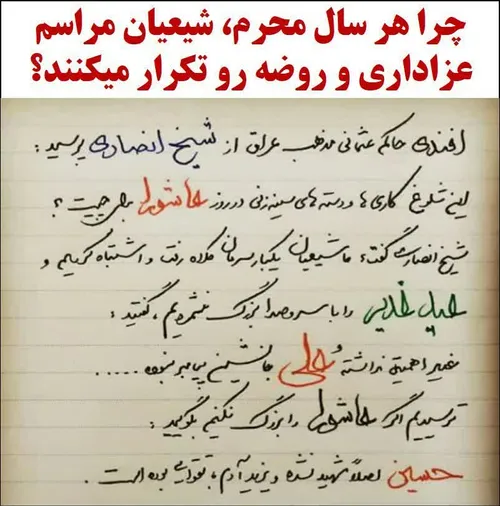 چرا هر سال محرم، شیعیان مراسم
عزاداری و روضه رو تکرار میکنند؟
افندی حاکم عثمانی مذهب عراق از شیخ انصاری پرسید:
این شلوغ کاری ها و دسته های سینه زنی در روز عاشورا برای چیست؟
شیخ انصاری گفت: ما شیعیان یکبار سرمان کلاه رفت و اشتباه کردیم و
عید غدیر را با سر و صدا بزرگ نشمردیم، گفتید:
غدیر اهمیتی نداشته و علی جانشین پیامبر نبوده .....
ترسیدیم اگر عاشورا را بزرگ نکنیم بگویید:
حسین اصلاً شهید نشده و یزید آدم با تقوایی بوده است.